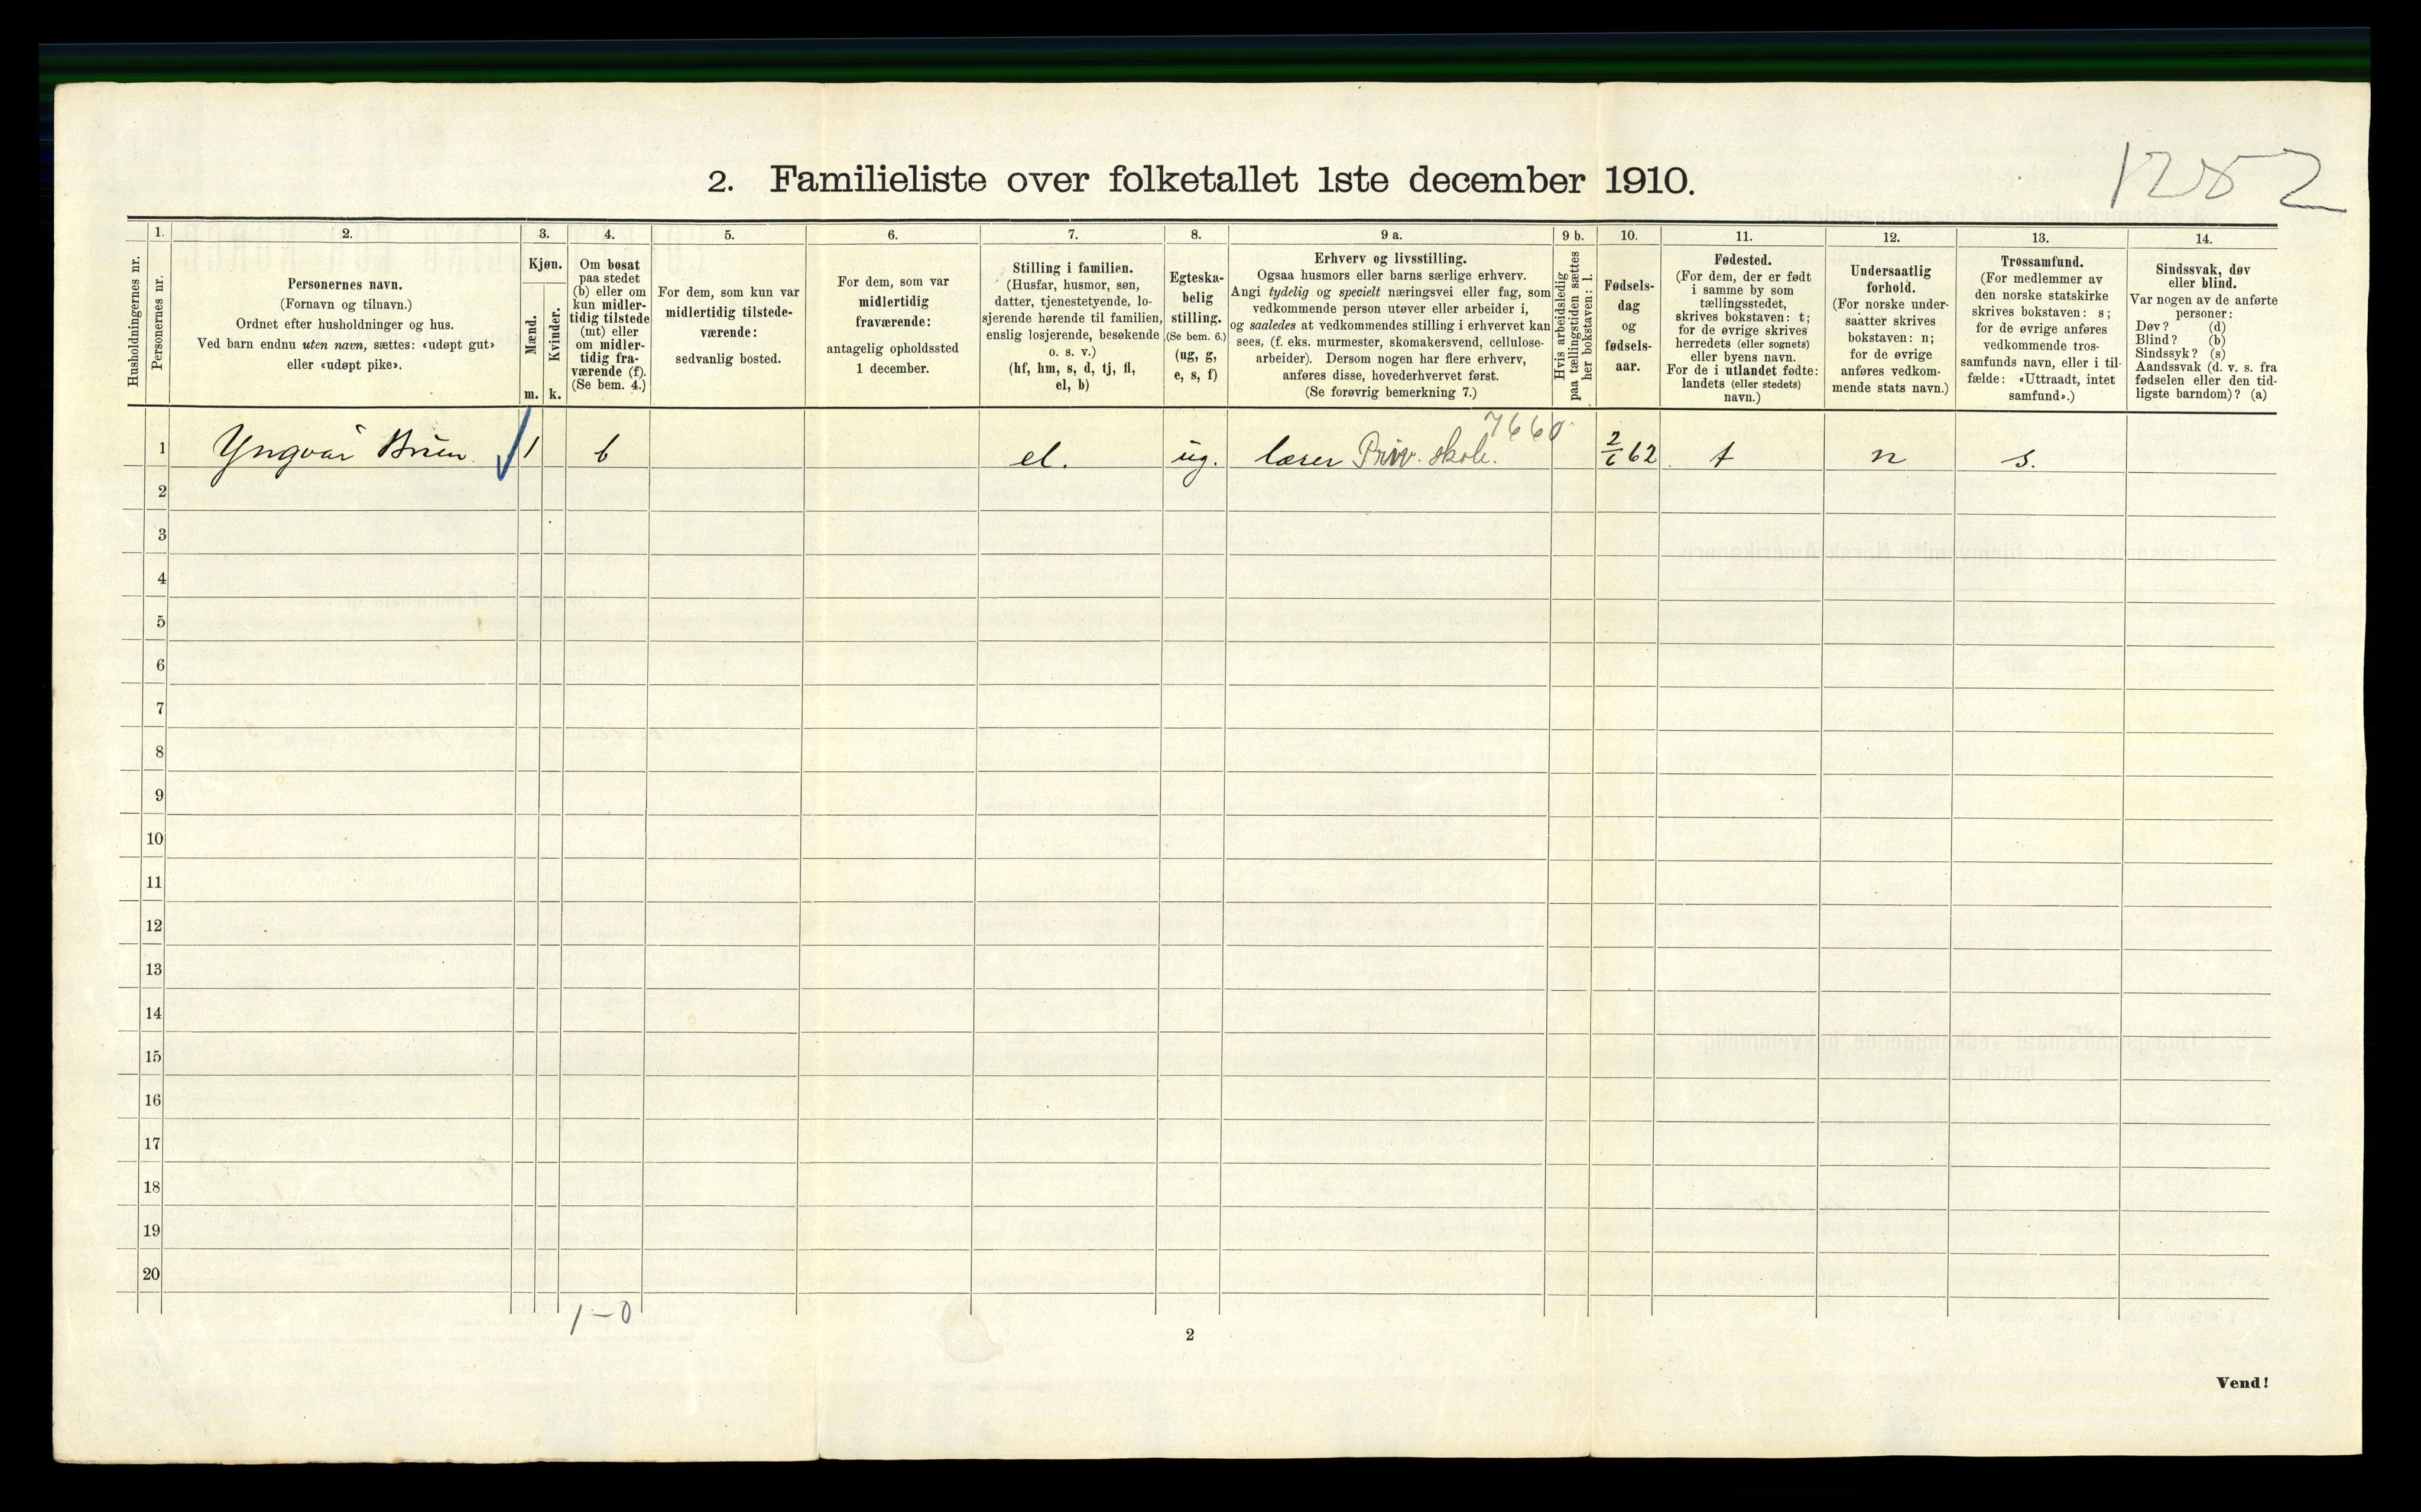 1252
2. Familieliste over folketallet 1ste december 1910.
Husholdningernes nr.
1.
Personernes nr.
2.
Personernes navn.
(Fornavn og tilnavn.)
Ordnet efter husholdninger og hus.
Ved barn endnu uten navn, sættes: «udøpt gut»
eller «udøpt pike».
3.
Kjøn.
Mænd.
Kvinder.
m. k.
4.
Om bosat
paa stedet
(b) eller om
kun midler-
tidig tilstede
(mt) eller
om midler-
tidig fra-
værende (f).
(Se bem. 4.)
5.
For dem, som kun var
midlertidig tilstede-
værende:
sedvanlig bosted.
6.
For dem, som var
midlertidig
fraværende:
antagelig opholdssted
1 december.
7.
Stilling i familien.
(Husfar, husmor, søn,
datter, tjenestetyende, lo-
sjerende hørende til familien,
enslig losjerende, besøkende
o. s. v.)
(hf, hm, s, d, tj, fl,
el, b)
8.
Egteska-
belig
stilling.
(Se bem. 6.)
(ug, g,
e, s, f)
9 a.
Erhverv og livsstilling.
Ogsaa husmors eller barns særlige erhverv.
Angi tydelig og specielt næringsvei eller fag, som
vedkommende person utøver eller arbeider i,
og saaledes at vedkommendes stilling i erhvervet kan
sees, (f. eks. murmester, skomakersvend, cellulose-
arbeider). Dersom nogen har flere erhverv,
anføres disse, hovederhvervet først.
(Se forøvrig bemerkning 7.)
9 b.
Hvis arbeidsledig
paa tællingstiden sættes
her bokstaven: l.
10.
Fødsels-
dag
og
fødsels-
aar.
11.
Fødested.
(For dem, der er født
i samme by som
tællingsstedet,
skrives bokstaven: t;
for de øvrige skrives
herredets (eller sognets)
eller byens navn.
For de i utlandet fødte:
landets (eller stedets)
navn.)
12.
Undersaatlig
forhold.
(For norske under-
saatter skrives
bokstaven: n;
for de øvrige
anføres vedkom-
mende stats navn.)
13.
Trossamfund.
(For medlemmer av
den norske statskirke
skrives bokstaven: s;
for de øvrige anføres
vedkommende tros-
samfunds navn, eller i til-
fælde: «Uttraadt, intet
samfund».)
14.
Sindssvak, døv
eller blind.
Var nogen av de anførte
personer:
Døv? (d)
Blind? (b)
Sindssyk? (s)
Aandssvak (d. v. s. fra
fødselen eller den tid-
ligste barndom)? (a)
7660
1 Yngvar Bruun 1 b el. ug. lærer Priv. skole. 2/6 62 t n s.
2
3
4
5
6
7
8
9
10
11
12
13
14
15
16
17
18
19
20
1-0
2
Vend!